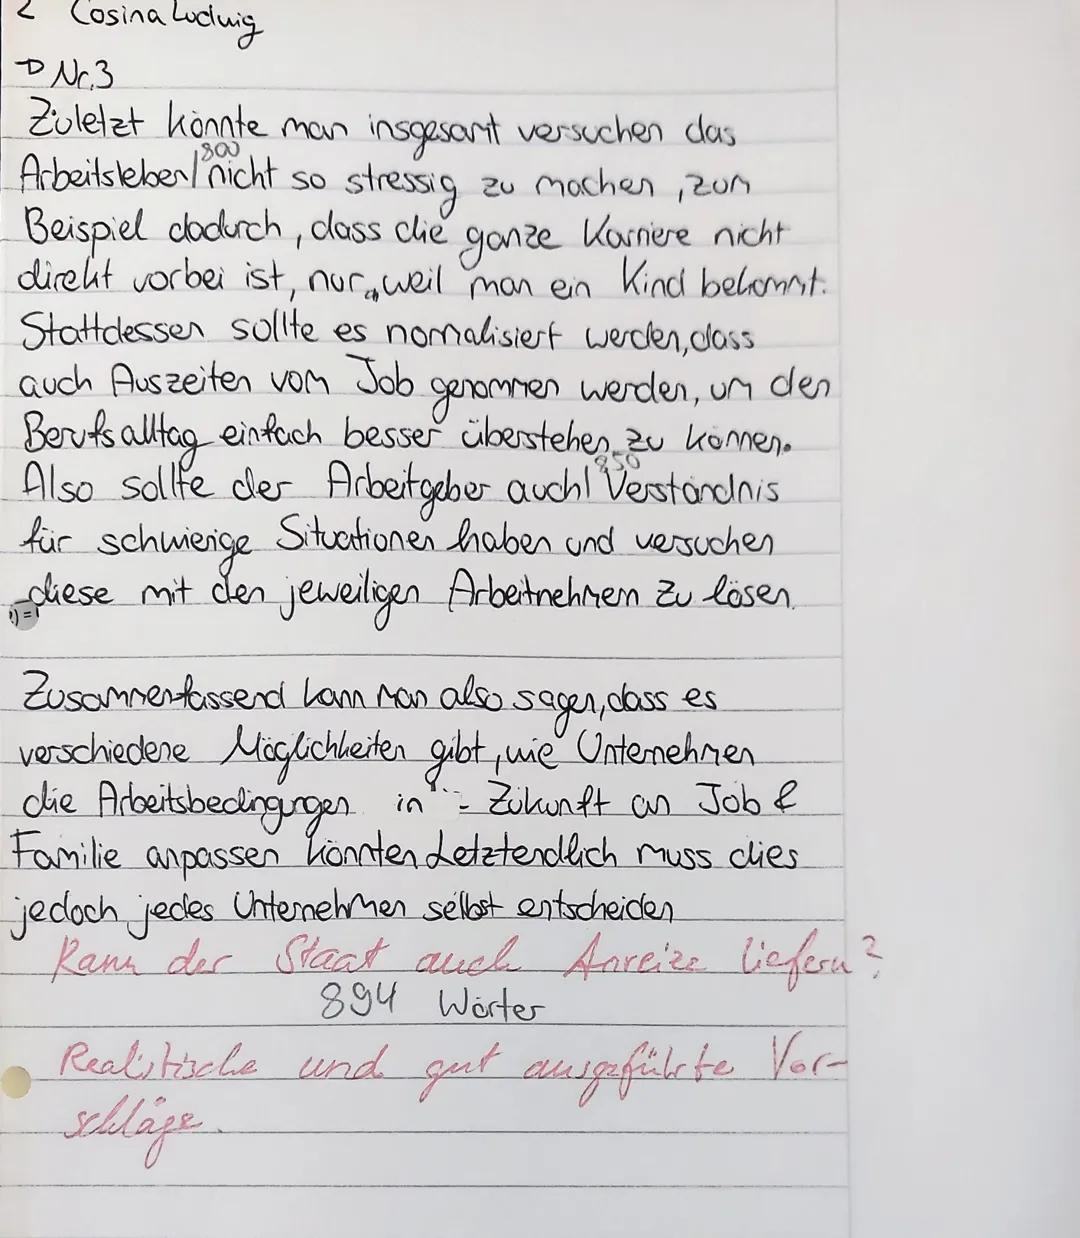 2 Cosina Ludwig
→ Nr.3
Zuletzt könnte man insgesamt versuchen das
800
Arbeitsleben/nicht so stressig zu machen, zum
Beispiel dadurch, dass die ganze Karriere nicht
direkt vorbei ist, nur, weil man ein Kind bekommt.
Stattdessen sollte es normalisiert werden, dass
auch Auszeiten vom Job genommen werden, um den
Berufsalltag einfach besser überstehen zu können.
850
Also sollte der Arbeitgeber auch/ Verständnis
für schwierige Situationen haben und versuchen
diese mit den jeweiligen Arbeitnehmern zu lösen.
Zusammenfassend kann man also sagen, dass es
verschiedene Möglichkeiten gibt, wie Unternehmen
die Arbeitsbedingungen in Zukunft an Job &
Familie anpassen könnten. Letztendlich muss dies
jedoch jedes Unternehmen selbst entscheiden
Kann der Staat auch Anreize liefern?
894 Wörter
Realistische und gut ausgeführte Vor-
schläge.